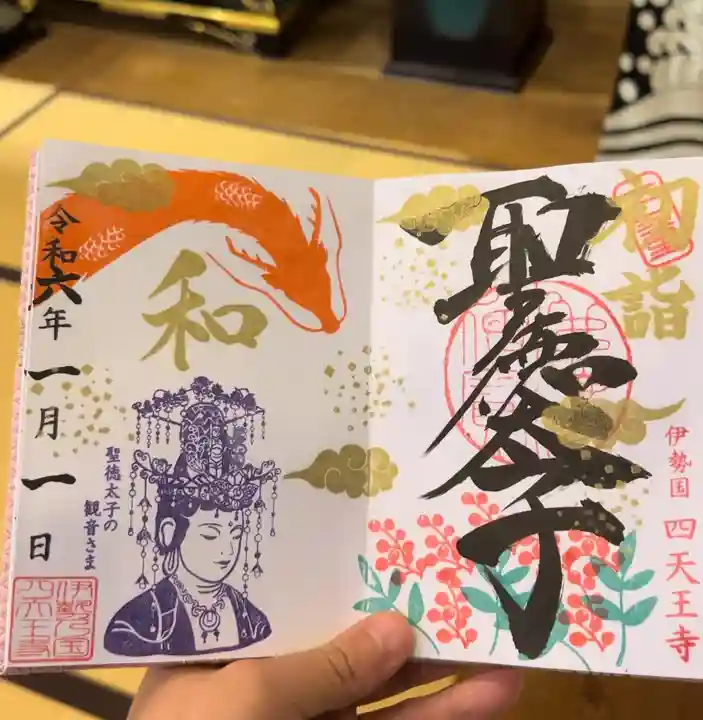 初詣
聖徳太子
伊勢国 四天王寺
和
聖徳太子の
観音さま
令和六年一月一日